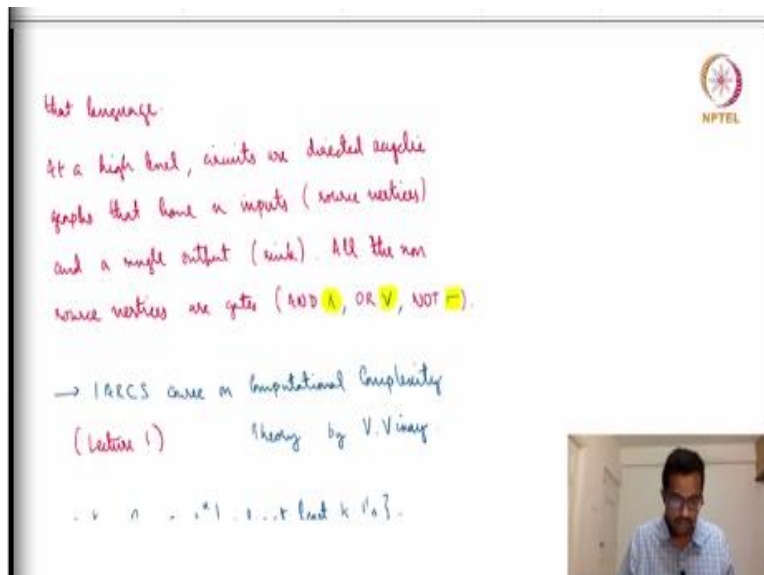 NPTEL
that language.
At a high level, circuits are directed acyclic
graphs that have n inputs (source vertices)
and a single output (sink). All the non
source vertices are gates (AND ∧, OR ∨, NOT ¬).
→ IARCS course on Computational Complexity
(Lecture 1) Theory by V. Vinay.
least k 1's}.